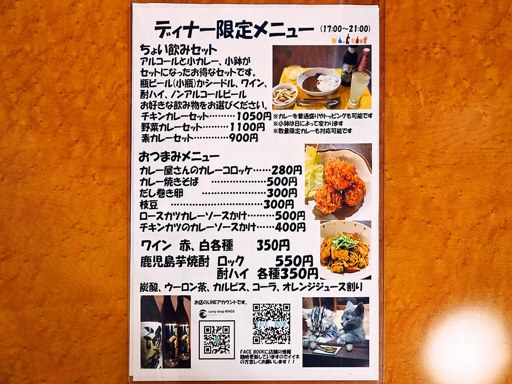 ディナー限定メニュー (17:00~21:00)
ちょい飲みセット
アルコールと小カレー、小鉢が
セットになったお得なセットです。
瓶ビール(小瓶)かシードル、ワイン、
酎ハイ、ノンアルコールビール
お好きな飲み物をお選びください。
チキンカレーセット………1050円
野菜カレーセット………1100円
素カレーセット…………900円
※カレーを普通盛りやトッピングも可能です
※小鉢は日によって変わります
※数量限定カレーも対応可能です
おつまみメニュー
カレー屋さんのカレーコロッケ……280円
カレー焼きそば ………………500円
だし巻き卵 ………………300円
枝豆 ………………300円
ロースカツカレーソースかけ………500円
チキンカツのカレーソースかけ……400円
ワイン 赤、白各種 350円
鹿児島芋焼酎 ロック 550円
酎ハイ 各種350円
炭酸、ウーロン茶、カルピス、コーラ、オレンジジュース割り
お店のLINEアカウントです。
curry shop
FACE BOOKに店舗の情報
随時更新していますのでイイネ
の方宜しくお願いします!